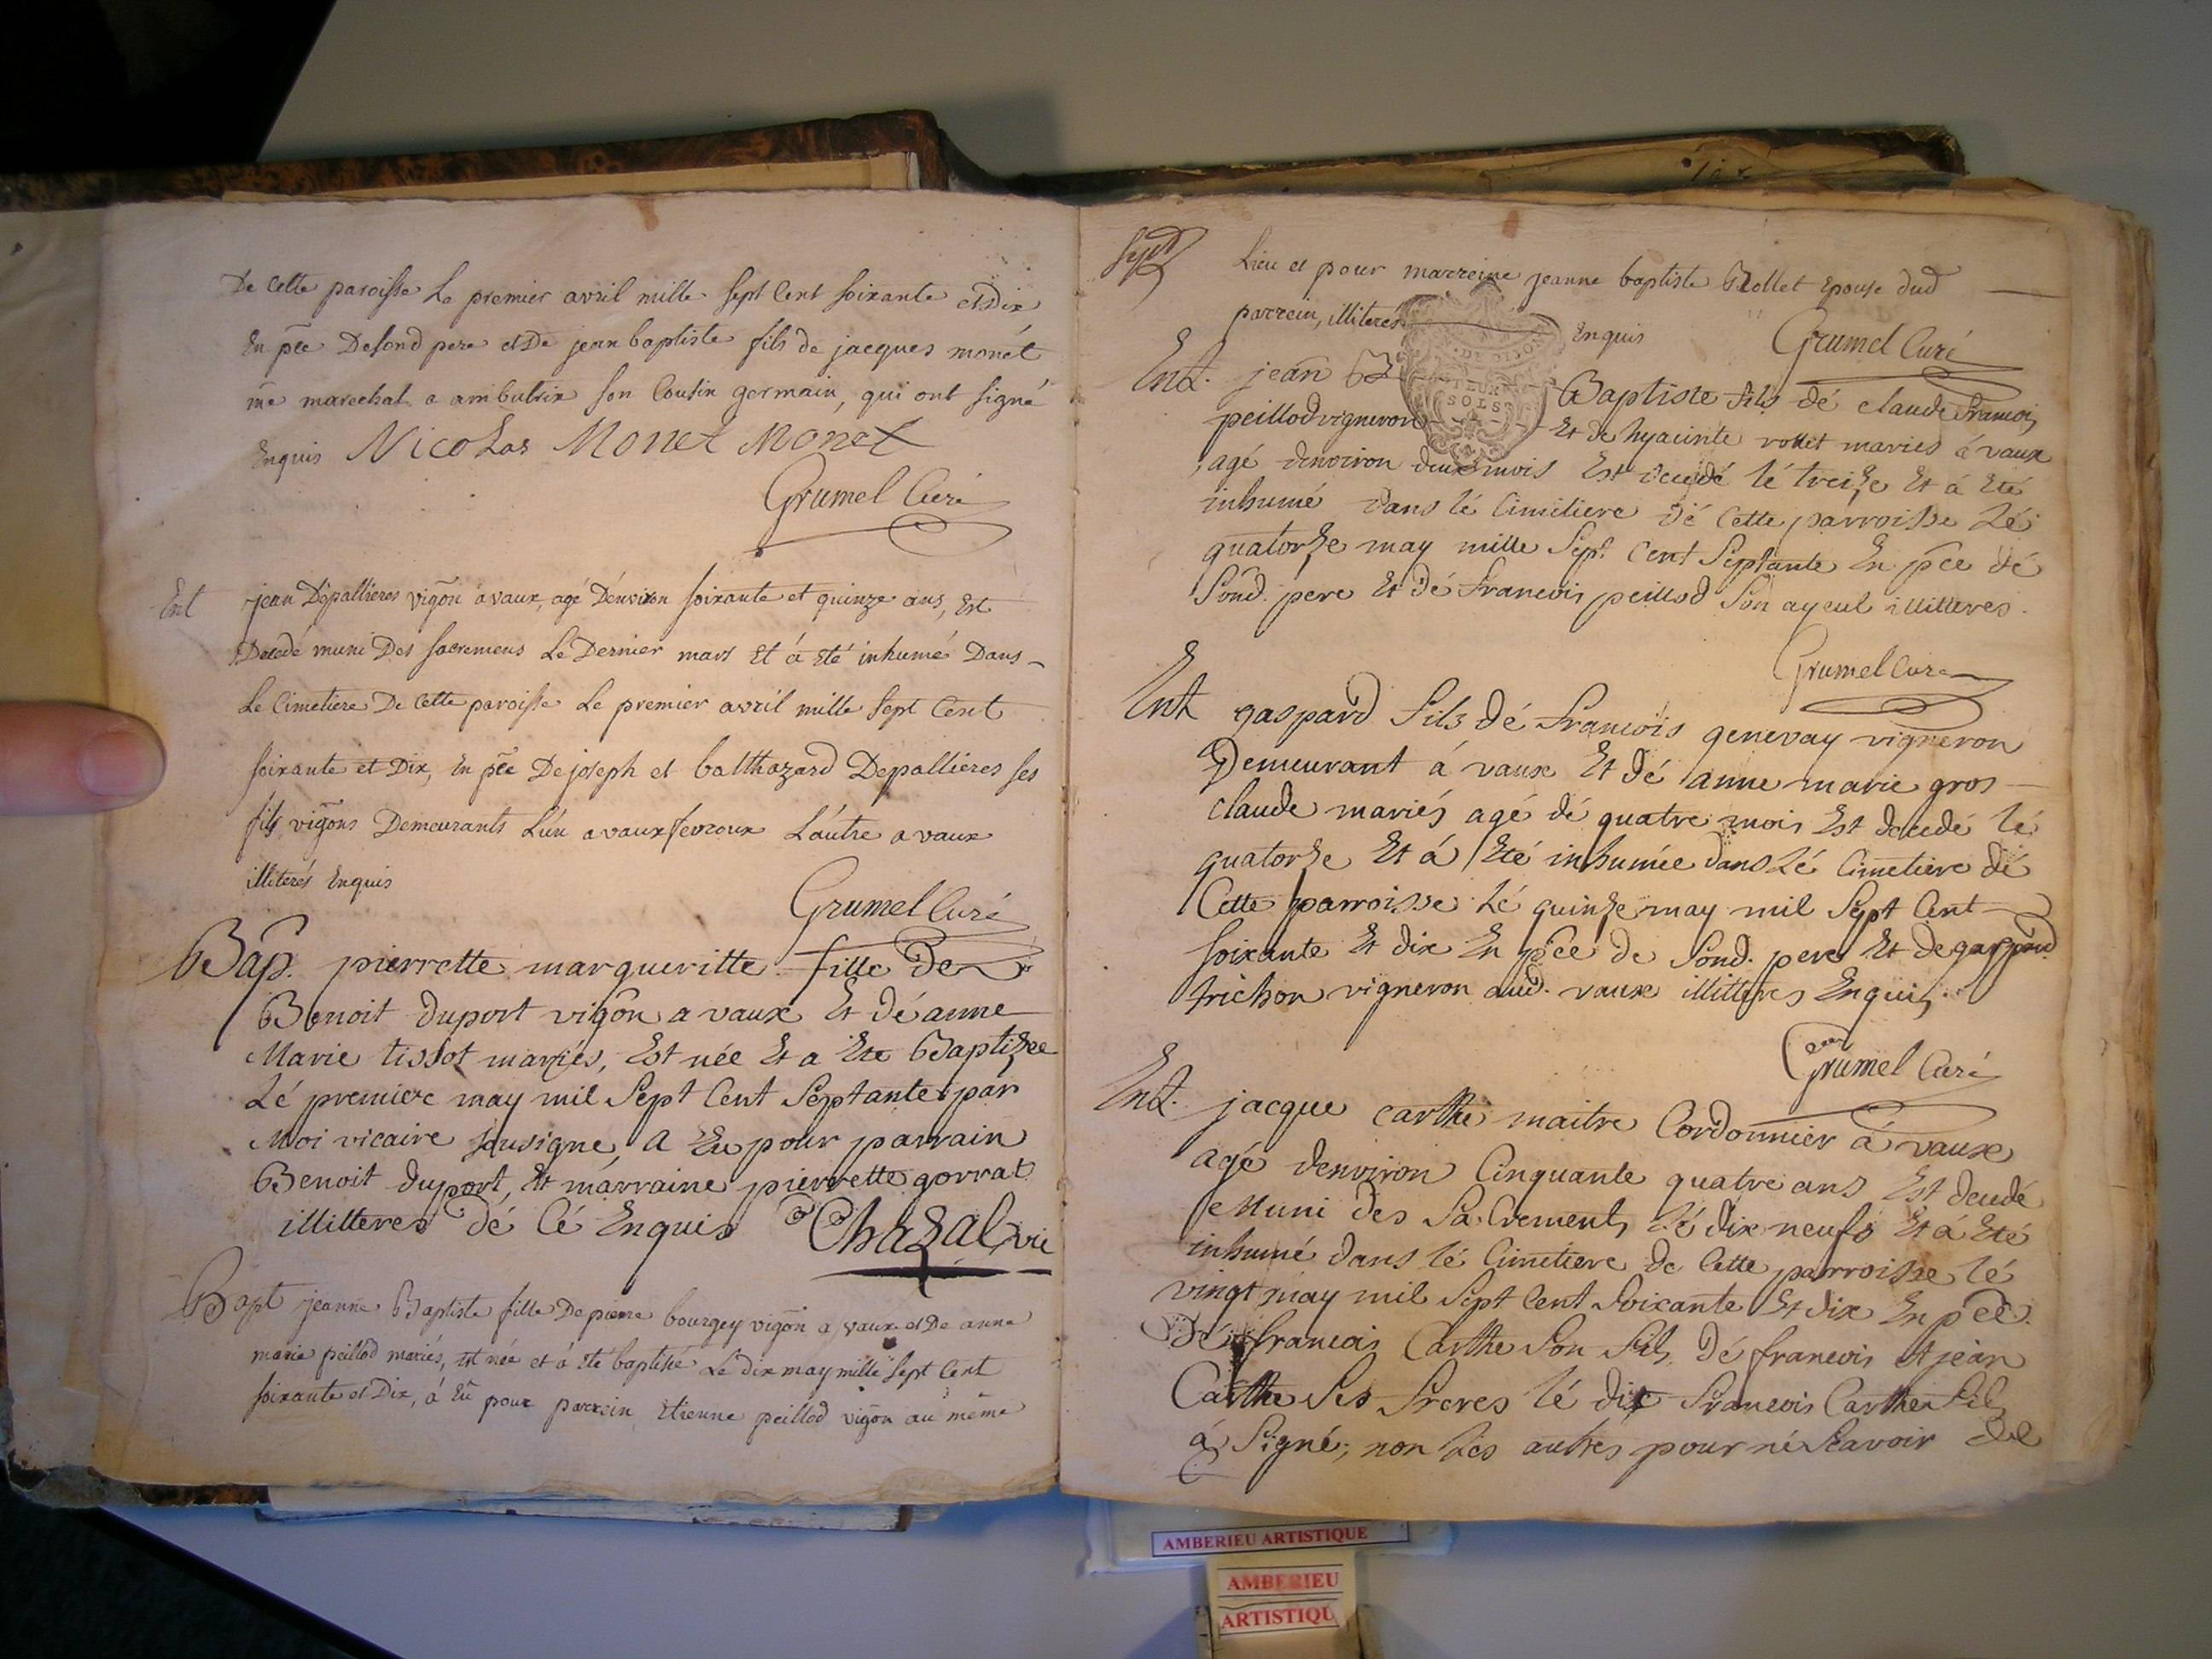 De cette paroisse Le premier avril mille sept Cent soixante et Dix
En pce Desond pere et De jean baptiste fils de jacques monét
me marechal a ambutrix son Cousin germain, qui ont signé
Enquis Nicolas Monet Monet
Grumel Curé
Ent jean Depallieres vigon a vaux, agé D'environ soixante et quinze ans, Est
Decedé muni Des sacremens Le Dernier mars Et á eté inhumé Dans
Le Cimetiere De Cette paroisse Le premier avril mille sept Cent
soixante et Dix, En pce De joseph et balthazard Depallieres ses
fils vigons Demeurants L'un a vaux fevroux L'autre a vaux
illiterés Enquis
Grumel Curé
Bap. pierrette margueritte fille De
Benoit duport vigon a vaux Et dé anne
Marie tissot mariés, Est née Et a Ete Baptizee
Lé premiere may mil Sept Cent Septante par
Moi vicaire sousigne, A Eu pour parrain
Benoit duport, Et marraine pierrette gorrat
illitteres dé Cé Enquis Chazal vic
Bapt jeanne Baptiste fille De pierre bourgey vigon a vaux et De anne
marie peillod mariés, est née et á eté baptisée Le dix may mille sept Cent
soixante et Dix, á Eu pour parrein Etienne peillod vigon au même
Lieu et pour marreine jeanne baptiste Rollet Epouse dud
parrein, illiterés Enquis Grumel Curé
DE DIJON
SOLS
Ent. jean B Baptiste fils dé claude francois
peillod vigneron Et de hyacinte rollet mariés á vaux
agé denviron deux mois Est decedé lé treize Et á Eté
inhumé dans lé Cimitiere dé Cette parroisse Lé
quatorze may mille Sept Cent Septante En pce dé
Sond. pere Et dé francois peillod Son ayeul illitteres.
Grumel Cure
Ent gaspard fils dé francois genevay vigneron
Demeurant á vaux Et dé anne marie gros
claude mariés agé dé quatre mois Est decedé lé
quatorze Et á Eté inhumée dans Lé Cimetiere dé
Cette parroisse Lé quinze may mil Sept Cent
soixante Et dix En pce de Sond. pere Et de gaspard
trichon vigneron aud. vaux illitteres Enquis.
Grumel Curé
Ent. jacque carthe maitre Cordonnier á vaux
agé denviron Cinquante quatre ans Est decedé
Muni des Sacrements lé dix neufs Et á Eté
inhumé dans lé Cimetiere de Cette parroisse lé
vingt may mil Sept Cent Soixante Et dix En pce
Dé francois Carthe Son fils, dé francois Et jean
Carthe Ses freres lé dit francois Carthe fils
á Signé, non Les autres pour né Scavoir de
AMBERIEU ARTISTIQUE
AMBERIEU
ARTISTIQU